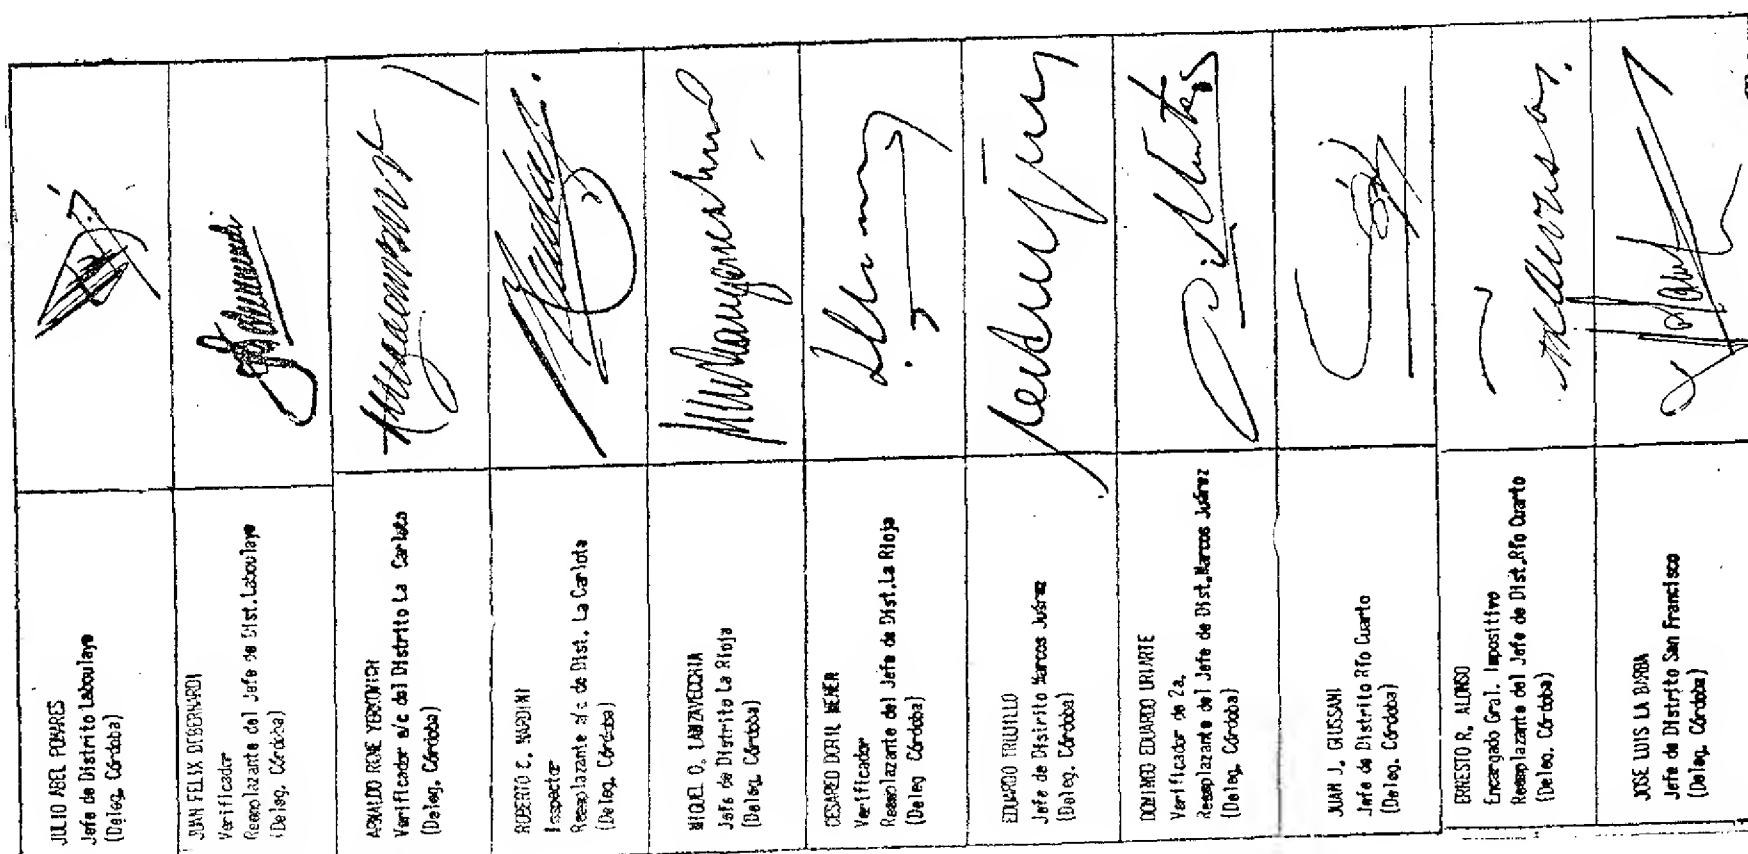 JULIO ABEL POMARES
Jefe de Distrito Laboulaye
(Deleg. Córdoba)
JUAN FELIX DEBERNARDI
Verificador
Reemplazante del Jefe de Dist. Laboulaye
(Deleg. Córdoba)
ARNALDO RENE YERKOVICH
Verificador a/c del Distrito La Carlota
(Deleg. Córdoba)
ROBERTO C. NARDINI
Inspector
Reemplazante a/c de Dist. La Carlota
(Deleg. Córdoba)
MIGUEL O. LANZAVECCHIA
Jefe de Distrito La Rioja
(Deleg. Córdoba)
CESAREO DORIL NEMER
Verificador
Reemplazante del Jefe de Dist.La Rioja
(Deleg Córdoba)
EDUARDO TRUJILLO
Jefe de Distrito Marcos Juárez
(Deleg. Córdoba)
DOMINGO EDUARDO URIARTE
Verificador de 2a.
Reemplazante del Jefe de Dist.Marcos Juárez
(Deleg. Córdoba)
JUAN J. GIUSSANI
Jefe de Distrito Río Cuarto
(Deleg. Córdoba)
ERNESTO R. ALONSO
Encargado Gral. Impositivo
Reemplazante del Jefe de Dist.Río Cuarto
(Deleg. Córdoba)
JOSE LUIS LA BARBA
Jefe de Distrito San Francisco
(Deleg. Córdoba)